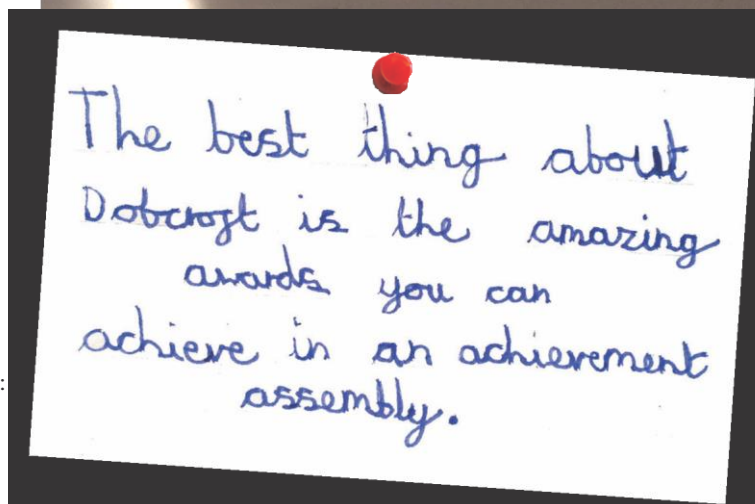 The best thing about
Dobcroft is the amazing
awards you can
achieve in an achievement
assembly.
: